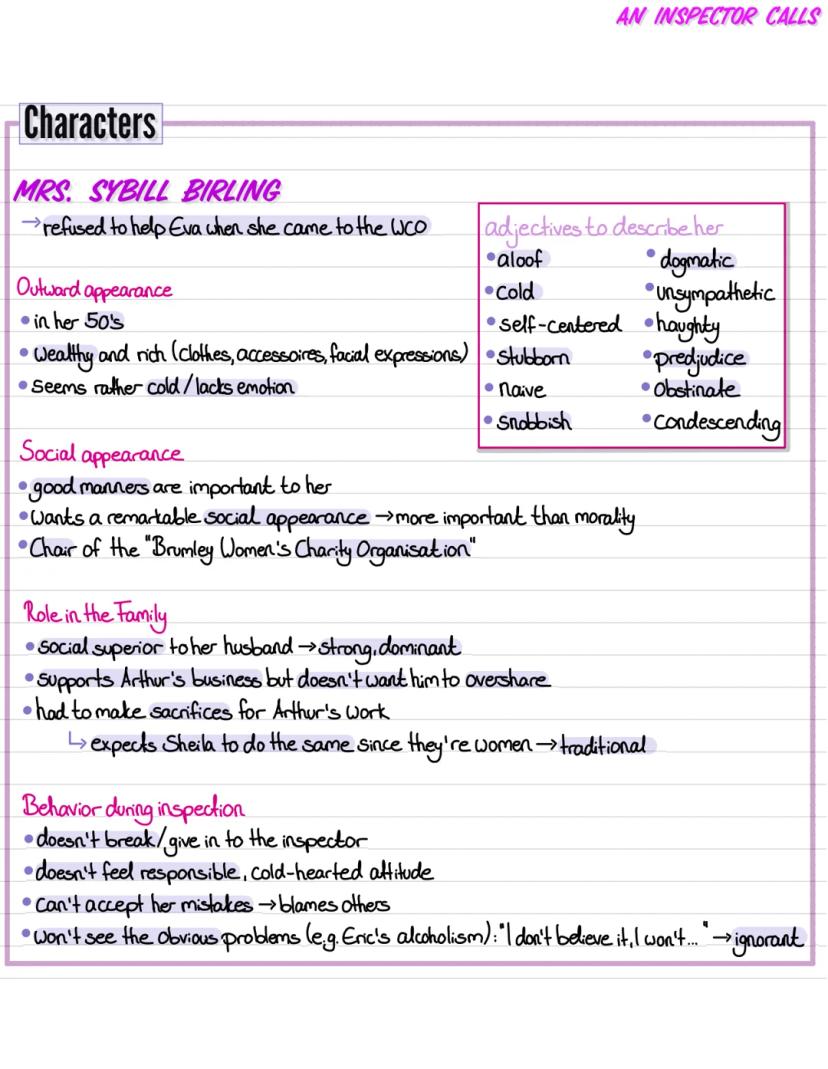 AN INSPECTOR CALLS
Characters
MRS. SYBILL BIRLING
→refused to help Eva when she came to the WCO
Outward appearance
•in her 50's
•Wealthy and rich (clothes, accessoires, facial expressions)
•seems rather cold/lacks emotion
adjectives to describe her
•aloof
•cold
•self-centered
•stubborn
•naive
•Snobbish
•dogmatic
•unsympathetic
•haughty
•predjudice
•Obstinate
•Condescending
Social appearance
•good manners are important to her
•Wants a remarkable social appearance →more important than morality
•Chair of the "Brumley Women's Charity Organisation"
Role in the Family
•social superior to her husband →strong, dominant
•supports Arthur's business but doesn't want him to overshare
•had to make sacrifices for Arthur's work
↳expects Sheila to do the same since they're women →traditional
Behavior during inspection
•doesn't break/give in to the inspector
•doesn't feel responsible, cold-hearted attitude
•can't accept her mistakes →blames others
•won't see the obvious problems (e.g. Eric's alcoholism): "I don't believe it, I won't..." →ignorant